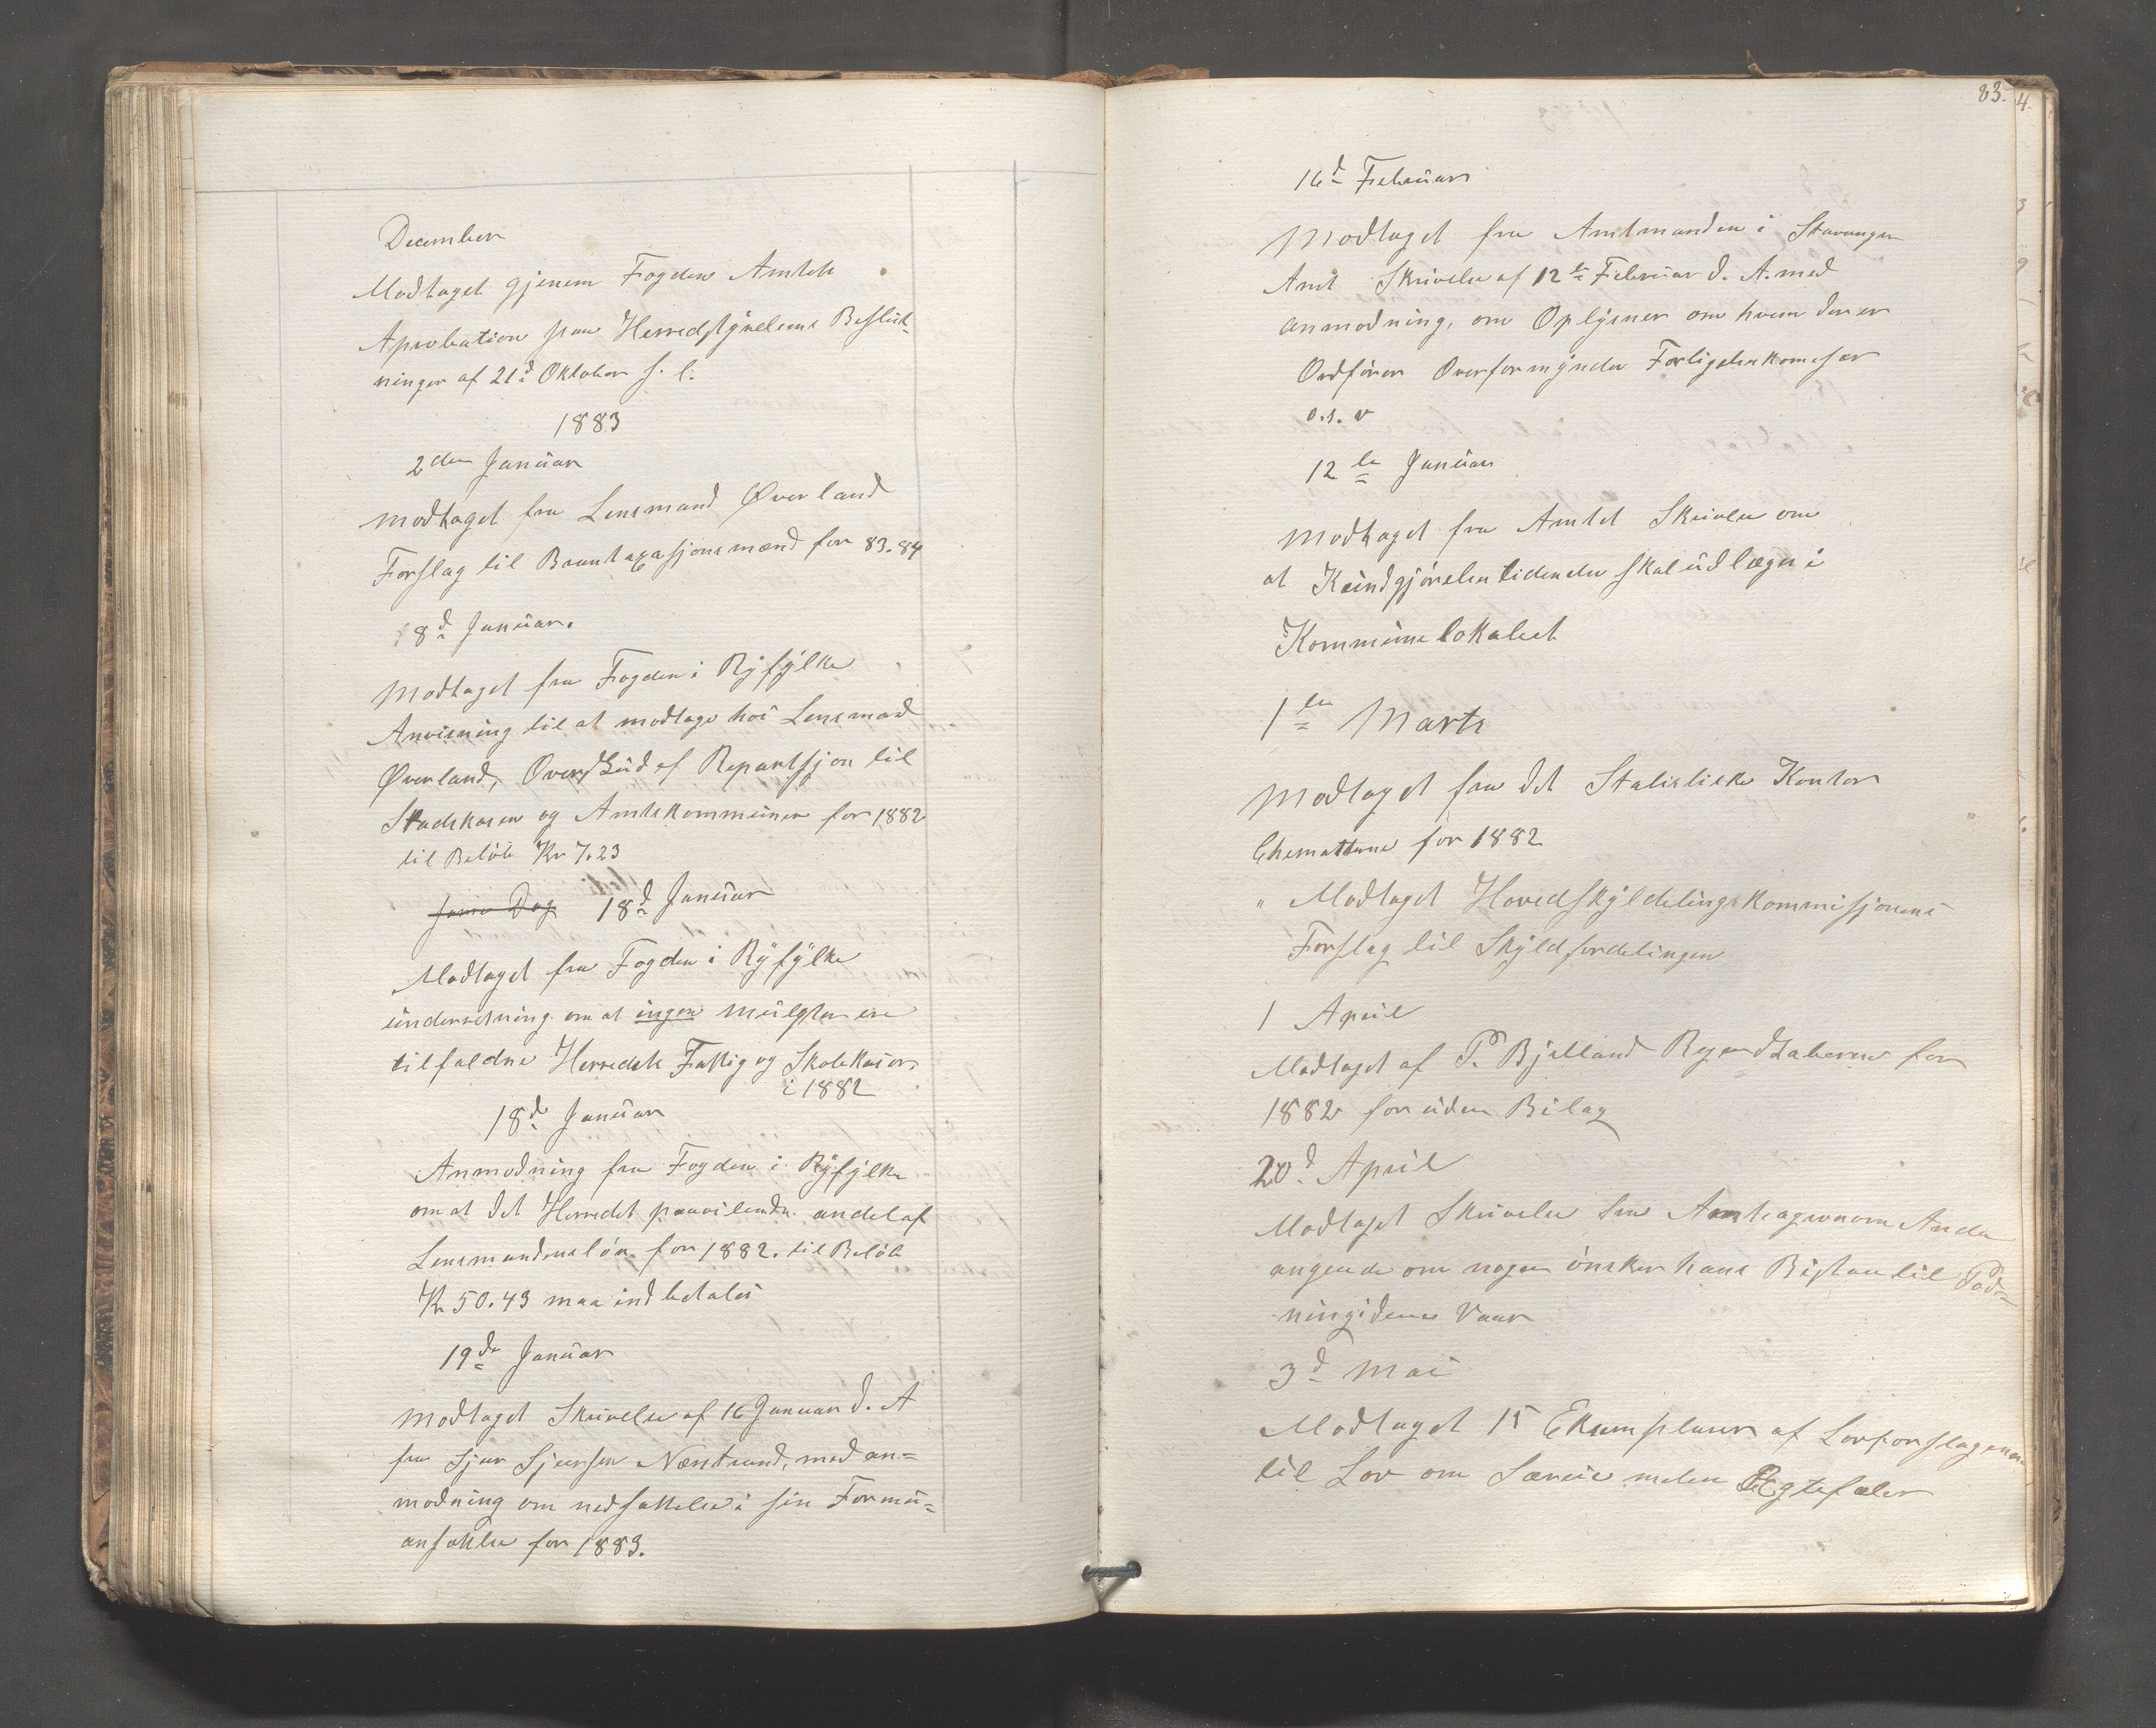 December
Modtaget gjenem Fogden Amtets
Aprobation paa Herredstyrelsens Beslut-
ninger af 21d Oktober f. l.
1883
2den Januar
Modtaget fra Lensmand Øverland
Forslag til Branntaxasjonsmænd for 83.84
18d Januar.
Modtaget fra Fogden i Ryfylke
Anvisning til at modtage hos Lensmand
Øverland, Overskud af Repartsjon til
Stadskasen og Amtskommunen for 1882
til Beløb Kr 7.23
same Dag 18d Januar
Modtaget fra Fogden i Ryfylke
underretning om at ingen Mulgter ere
tilfaldne Herredets Fattig og Skolekaser
i 1882
18d Januar
Anmodning fra Fogden i Ryfylke
om at det Herredet paavilende andel af
Lensmandens løn for 1882. til Beløb
Kr 50.43 maa indbetales
19de Januar
Modtaget Skrivelse af 16 Januar d. A
fra Sjur Sjursen Næstrand, med an=
modning om nedsattelse i sin Formu=
ansattelse for 1883.
83. 4.
16d Februar
Modtaget fra Amtmanden i Stavanger
Amt Skrivelse af 12te Februar d. A. med
anmodning, om Oplysner om hvem der er
Ordfører Overformynder Forligelseskomesær
o.s.v
12te Januar
Modtaget fra Amtet Skrivelse om
at Kundgjørelsestidende skal udlæges i
Kommunelokalet
1te Marts
Modtaget fra det Statistiske Kontor
Chemattene for 1882
" Modtaget Hovedskyldelingskommisjonens
Forslag til Skyldfordelingen
1 April
Modtaget af P. Bjelland Regendskaberne for
1882 foruden Bilag
20d April
Modtaget Skrivelse fra Amtsagronom Anda
angende om nogen ønsker hans Bistan til Pød=
ning i dene Vaar
3d Mai
Modtaget 15 Eksemplarer af Lovforslagene
til Lov om Særeie melem Ægtefæler